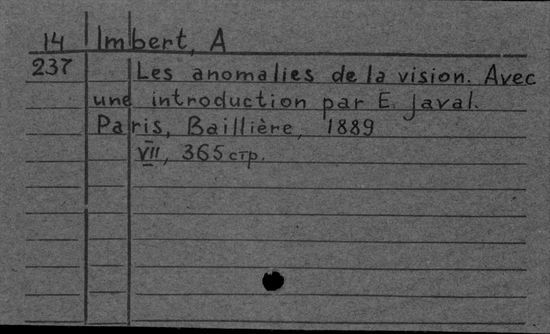 14 Imbert, A
237 Les anomalies de la vision. Avec
une introduction par E. Javal.
Paris, Baillière, 1889
VII, 365 стр.